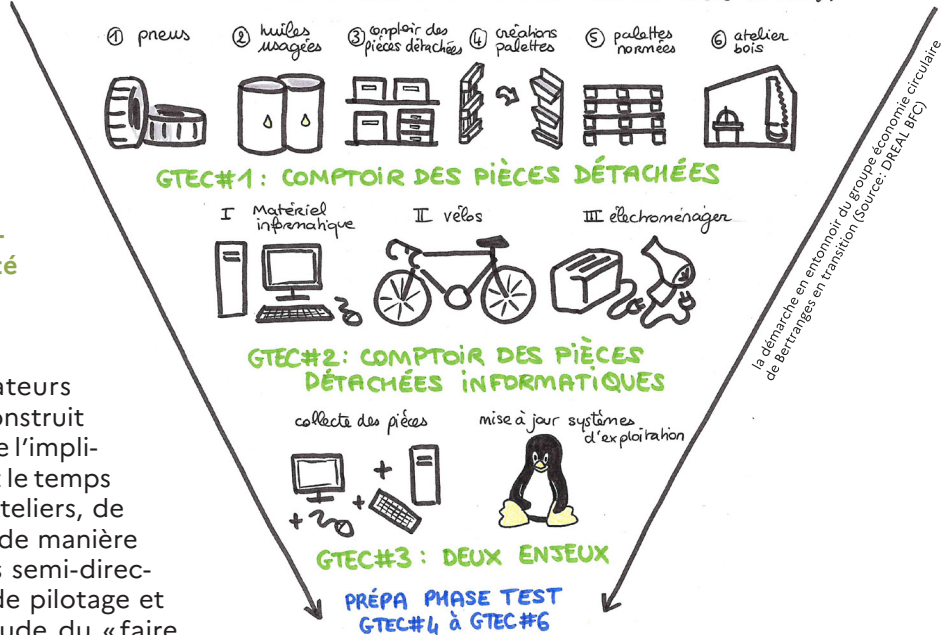 ① pneus
② huiles usagées
③ comptoir des pièces détachées
④ créations palettes
⑤ palettes normées
⑥ atelier bois
GTEC#1 : COMPTOIR DES PIÈCES DÉTACHÉES
I Matériel informatique
II vélos
III électroménager
GTEC#2 : COMPTOIR DES PIÈCES
DÉTACHÉES INFORMATIQUES
collecte des pièces
mise à jour systèmes
d'exploitation
+
+
+
GTEC#3 : DEUX ENJEUX
PRÉPA PHASE TEST
GTEC#4 à GTEC#6
la démarche en entonnoir du groupe économie circulaire
de Bertranges en transition (Source : DREAL BFC)
-
té
ateurs
onstruit
e l'impli-
t le temps
teliers, de
de manière
s semi-direc-
de pilotage et
ude du « faire